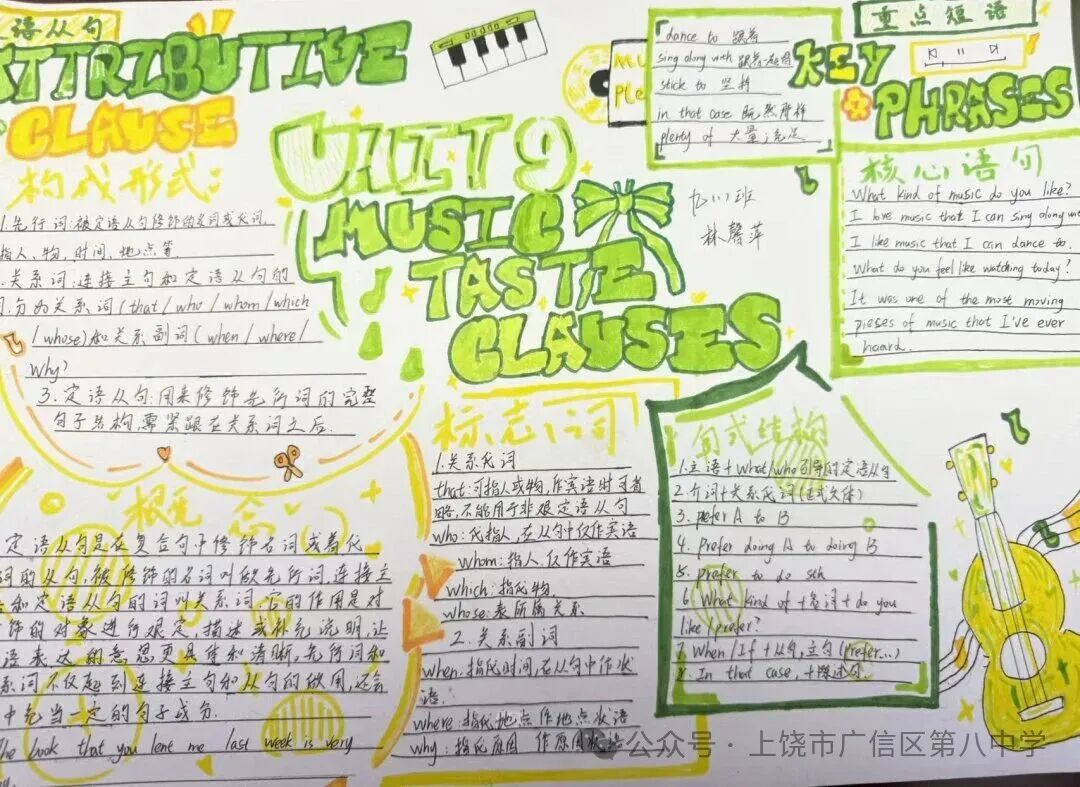 语从句
ATTRIBUTIVE
CLAUSE
构成形式:
1.先行词:被定语从句修饰的名词或代词.
指人、物,时间,地点等
.关系词:连接主句和定语从句的
词.分为关系词(that/who/whom/which
/whose)和关系副词(when/where/
why)
3.定语从句:用来修饰先行词的完整
句子结构,需紧跟在关系词之后.
概念
定语从句是在复合句中修饰名词或着代
词的从句,被修饰的名词叫做先行词,连接主
和定语从句的词叫关系词,它的作用是对
饰的对象进行限定,描述或补充说明,让
语表达的意思更具体和清晰,先行词和
系词不仅起到连接主句和从句的做用,还会
中充当一定的句子成分.
The book that you lent me last week is very
UNIT 9
MUSIC
TASTE
CLAUSES
九(1)班
林馨萍
MU
Ple
dance to 跟着
sing along with 跟着一起唱
stick to 坚持
in that case 既然那样
plenty of 大量;充足
重点短语
KEY
PHRASES
核心语句
What kind of music do you like?
I love music that I can sing along with
I like music that I can dance to.
What do you feel like watching today?
It was one of the most moving
pieses of music that I've ever
heard.
标志词
1.关系代词
that:可指人或物,作宾语时可省
略,不能用于非限定语从句
who:代指人,在从句中仅作宾语
whom:指人,仅作宾语
which:指代物
whose:表所属关系
2.关系副词
when:指代时间,在从句中作状
语.
where:指代地点作地点状语
why:指代原因 作原因状语
句式结构
1.主语+what/who引导的定语从句
2.介词+关系代词(正式文体)
3. prefer A to B
4. Prefer doing A to doing B
5. Prefer to do sth
6. What kind of +名词+ do you
like/prefer?
7. When/If +从句,主句(prefer...)
8. In that case, +陈述句.
公众号·上饶市广信区第八中学